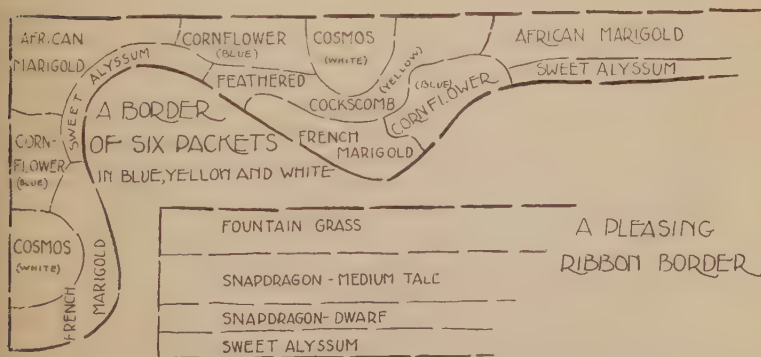 AFRICAN
MARIGOLD
SWEET ALYSSUM
CORNFLOWER
(BLUE)
COSMOS
(WHITE)
FEATHERED
COCKSCOMB
(YELLOW)
(BLUE)
CORNFLOWER
AFRICAN MARIGOLD
SWEET ALYSSUM
A BORDER
OF SIX PACKETS
IN BLUE, YELLOW AND WHITE
FRENCH
MARIGOLD
CORN-
FLOWER
(BLUE)
COSMOS
(WHITE)
FRENCH
MARIGOLD
FOUNTAIN GRASS
SNAPDRAGON - MEDIUM TALL
SNAPDRAGON - DWARF
SWEET ALYSSUM
A PLEASING
RIBBON BORDER